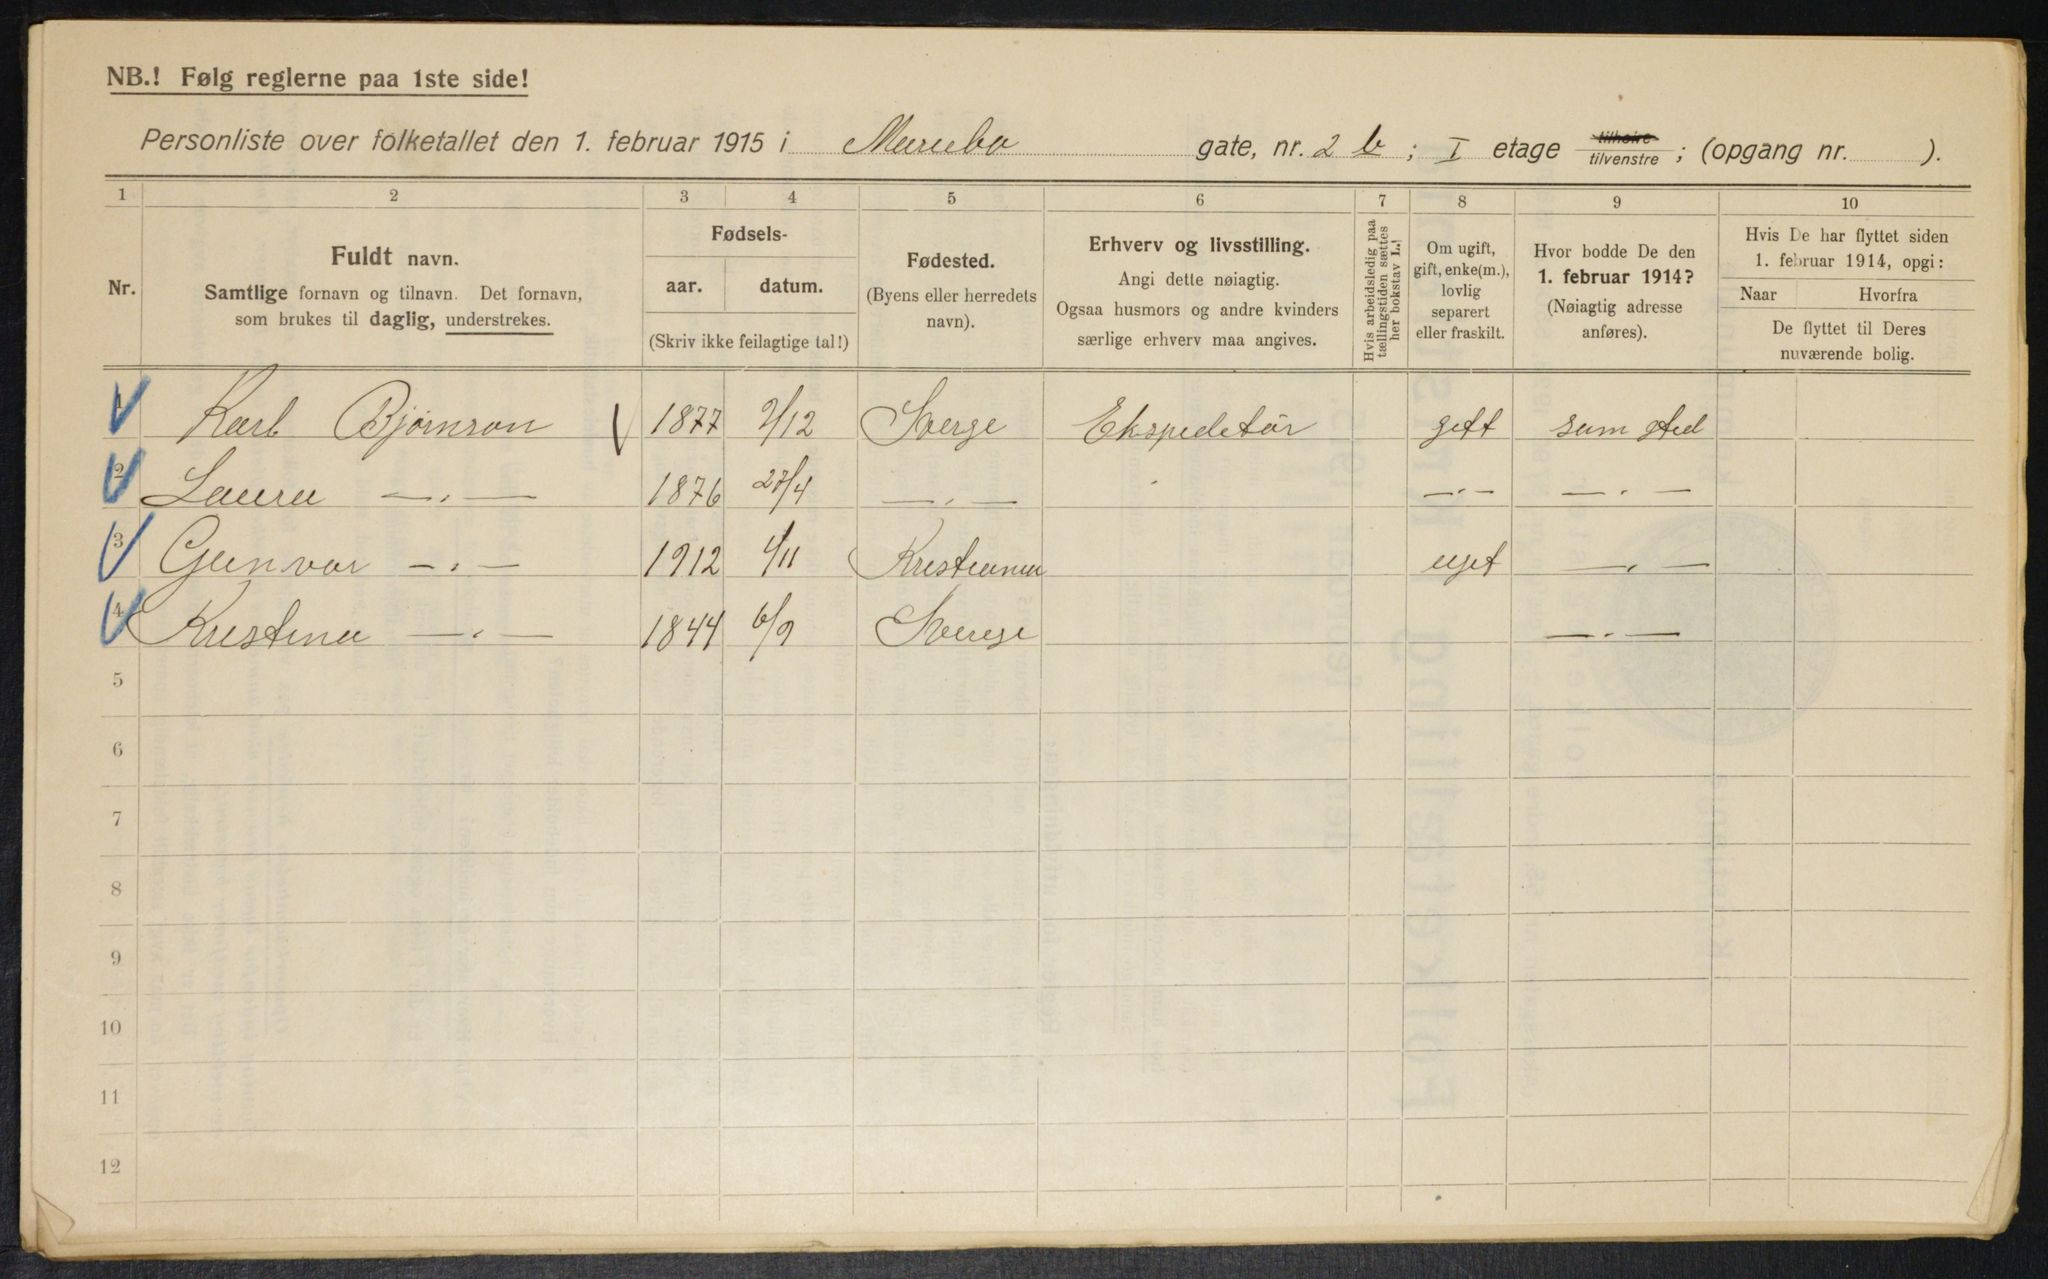 NB.! Følg reglerne paa 1ste side!
Personliste over folketallet den 1. februar 1915 i Maribo gate, nr. 2 b ; I etage tilhøire tilvenstre ; (opgang nr. ).
1 2 3 4 5 6 7 8 9 10
Nr.
Fuldt navn.
Samtlige fornavn og tilnavn. Det fornavn,
som brukes til daglig, understrekes.
Fødsels-
aar. datum.
(Skriv ikke feilagtige tal!)
Fødested.
(Byens eller herredets
navn).
Erhverv og livsstilling.
Angi dette nøiagtig.
Ogsaa husmors og andre kvinders
særlige erhverv maa angives.
Hvis arbeidsledig paa
tællingstiden sættes
her bokstav L.!
Om ugift,
gift, enke(m.),
lovlig
separert
eller fraskilt.
Hvor bodde De den
1. februar 1914?
(Nøiagtig adresse
anføres).
Hvis De har flyttet siden
1. februar 1914, opgi:
Naar Hvorfra
De flyttet til Deres
nuværende bolig.
1 Karl Bjørnson 1877 9/12 Sverge Ekspeditør gift sam sted
2 Laura —.— 1876 27/4 —.— —.— —.—
3 Gunvor —.— 1912 4/11 Kristiania ugift —.—
4 Kristina —.— 1844 6/9 Sverge —.—
5
6
7
8
9
10
11
12